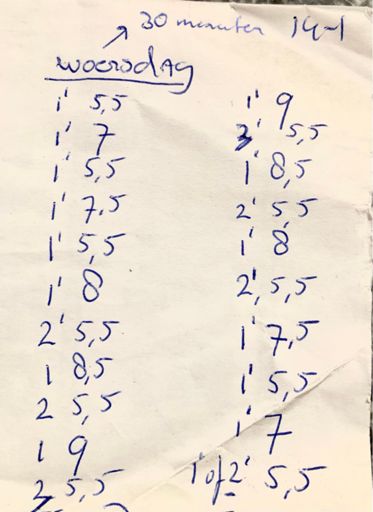 30 minuten 14-1
woensdag
1' 5,5
1' 7
1' 5,5
1' 7,5
1' 5,5
1' 8
2' 5,5
1 8,5
2 5,5
1 9
3 5,5
1' 9
3' 5,5
1' 8,5
2' 5,5
1' 8
2' 5,5
1' 7,5
1' 5,5
1' 7
1' of 2' 5,5